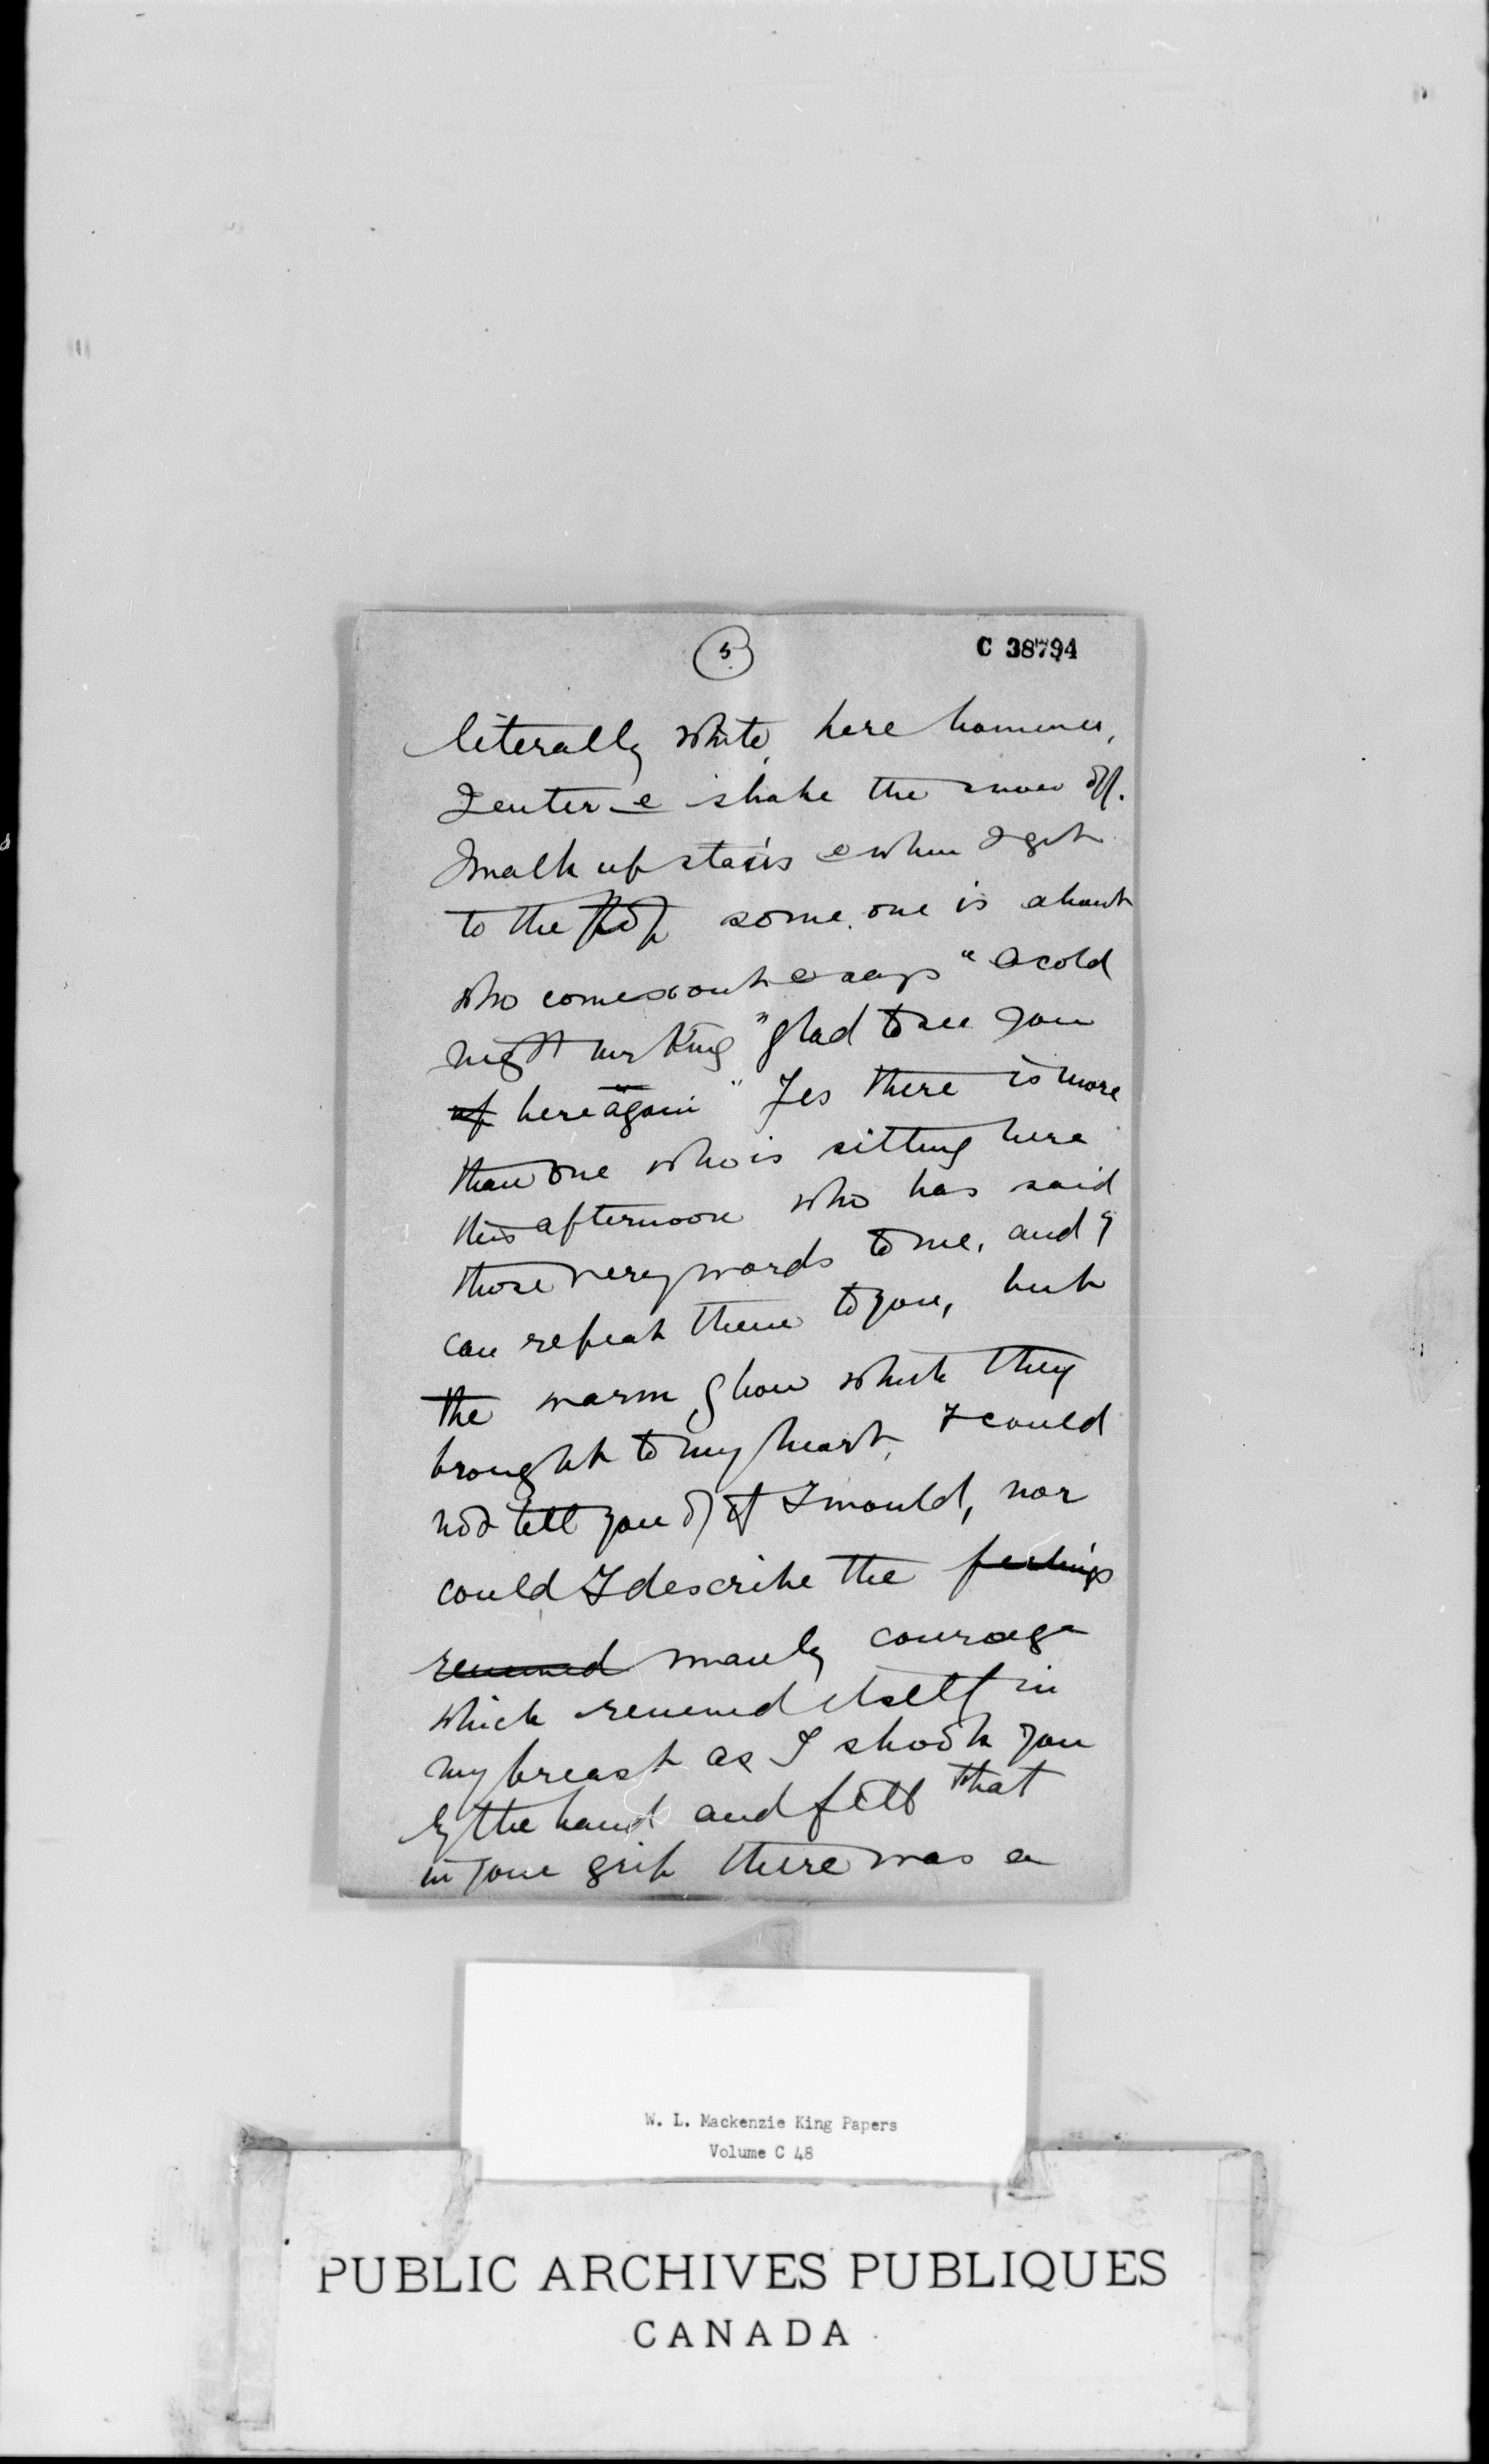 5.
C 38794
literally white, here however,
I enter & shake the snow off.
I walk up stairs & when I get
to the top some one is about
who comes out & says "A cold
night Mr King" "glad to see you
up here again" Yes there is more
than one who is sitting here
this afternoon who has said
those very words to me, and I
can repeat them to you, but
the warm glow which they
brought to my heart, I could
not tell you of if I would, nor
could I describe the feelings
renewed manly courage
which renewed itself in
my breast as I shook you
by the hand and felt that
in your grip there was a
W. L. Mackenzie King Papers
Volume C 48
PUBLIC ARCHIVES PUBLIQUES
CANADA